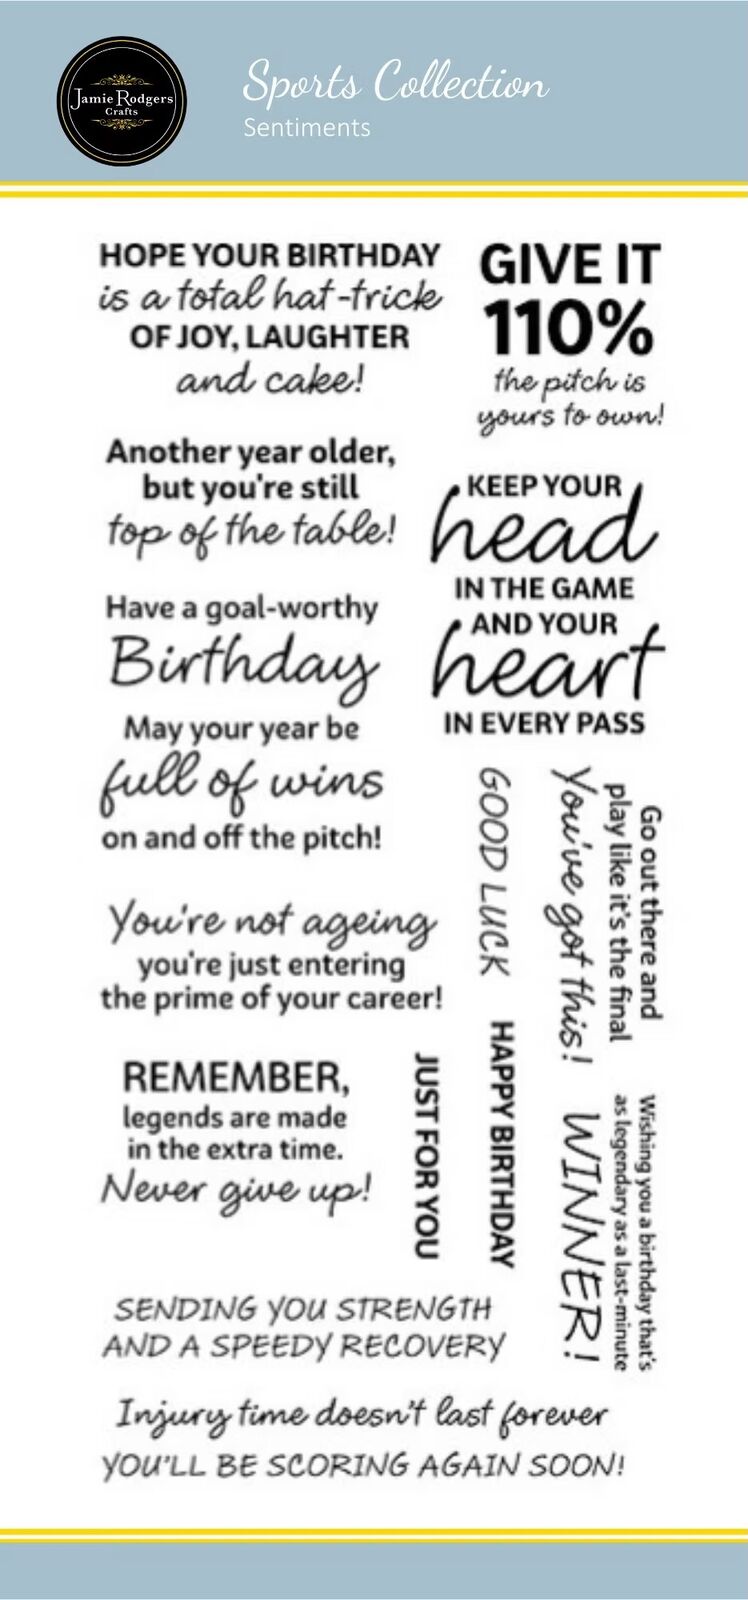 Jamie Rodgers
Crafts
Sports Collection
Sentiments
HOPE YOUR BIRTHDAY
is a total hat-trick
OF JOY, LAUGHTER
and cake!
GIVE IT
110%
the pitch is
yours to own!
Another year older,
but you're still
top of the table!
KEEP YOUR
head
IN THE GAME
AND YOUR
heart
IN EVERY PASS
Have a goal-worthy
Birthday
May your year be
full of wins
on and off the pitch!
You're not ageing
you're just entering
the prime of your career!
GOOD LUCK
You've got this!
Go out there and
play like it's the final
REMEMBER,
legends are made
in the extra time.
Never give up!
JUST FOR YOU
HAPPY BIRTHDAY
WINNER!
Wishing you a birthday that's
as legendary as a last-minute
SENDING YOU STRENGTH
AND A SPEEDY RECOVERY
Injury time doesn't last forever
YOU'LL BE SCORING AGAIN SOON!